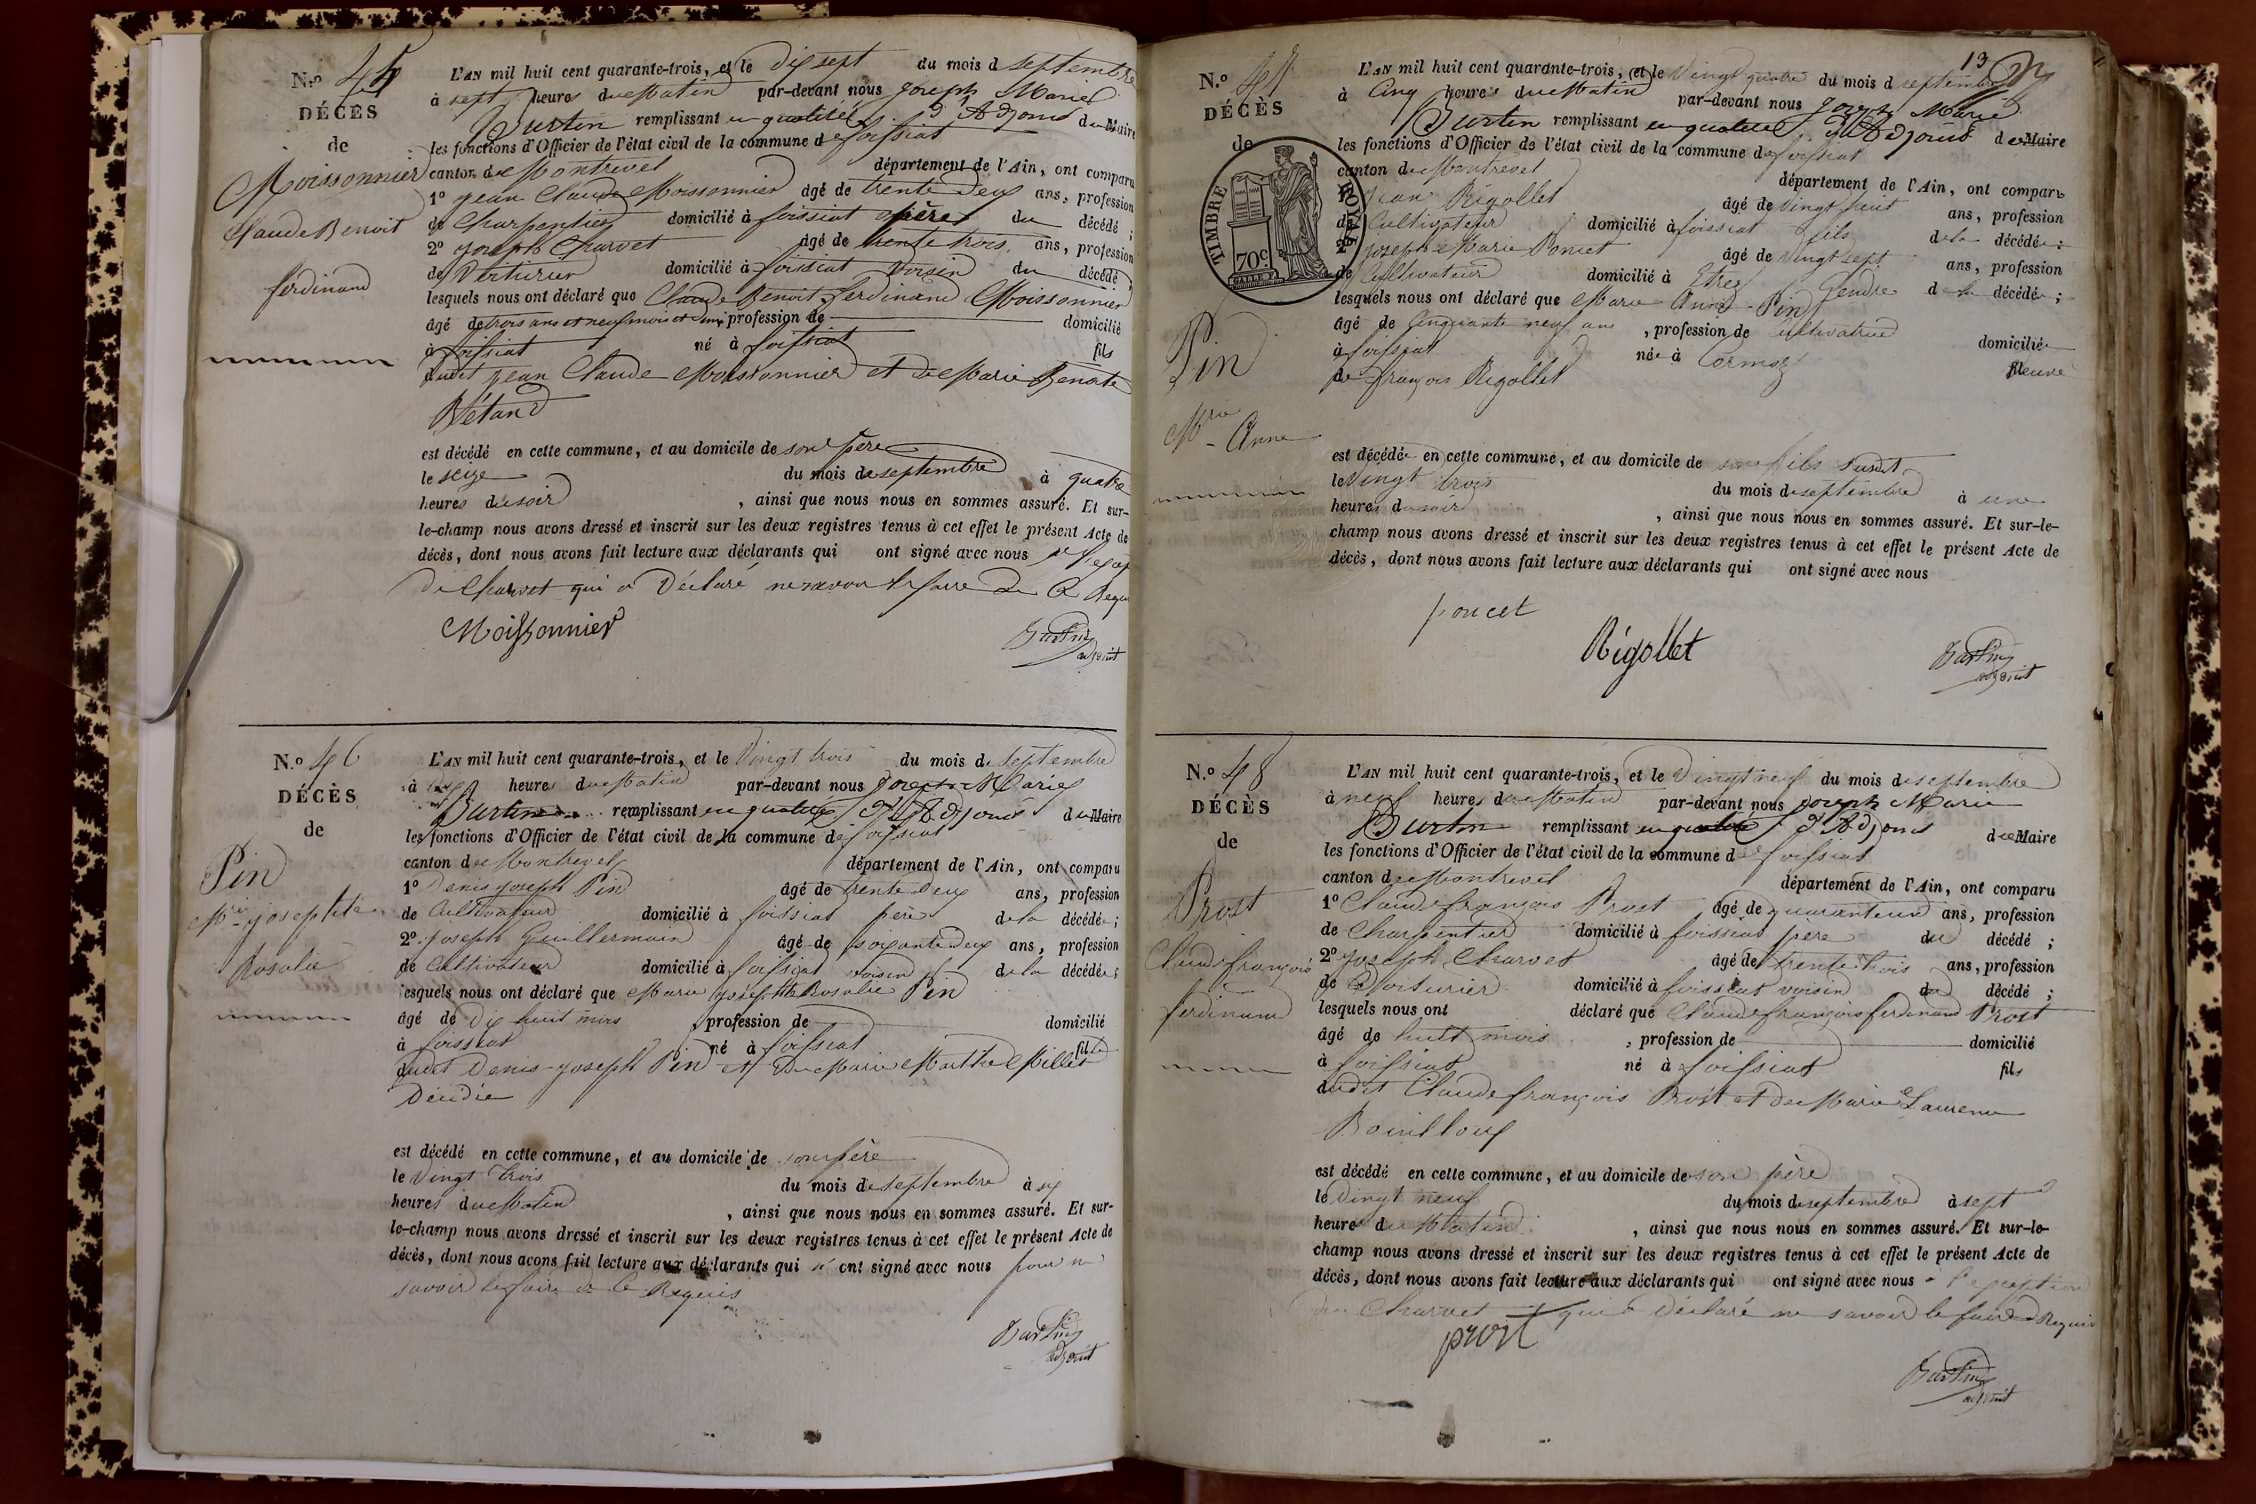 N.º 45
DÉCÈS
de
Moissonnier
Claude Benoit
ferdinand
L'AN mil huit cent quarante-trois, et le dix sept du mois d septembre
à sept heures du Matin par-devant nous Joseph Marie
Burtin remplissant en qualité d'Adjoint du Maire
les fonctions d'Officier de l'état civil de la commune de foissiat
canton de Montrevel département de l'Ain, ont comparu
1º Jean Claude Moissonnier âgé de trente deux ans, profession
de Charpentier domicilié à foissiat père du décédé ;
2º Joseph Charvet âgé de trente trois ans, profession
de Voiturier domicilié à foissiat voisin du décédé
lesquels nous ont déclaré que Claude Benoit ferdinand Moissonnier
âgé de trois ans et neuf mois et demi profession de domicilié
à foissiat né à foissiat fils
dudit Jean Claude Moissonnier et de Marie Benoite
Bétand
est décédé en cette commune, et au domicile de son père
le seize du mois de septembre à quatre
heures du soir , ainsi que nous nous en sommes assuré. Et sur-
le-champ nous avons dressé et inscrit sur les deux registres tenus à cet effet le présent Acte de
décès, dont nous avons fait lecture aux déclarants qui ont signé avec nous
de Charvet qui a déclaré ne savoir le faire de ce Requis
Moissonnier
Burtin
adjoint
N.º 46
DÉCÈS
de
Pin
Mie Josephte
Rosalie
L'AN mil huit cent quarante-trois, et le vingt trois du mois de septembre
à heures du Matin par-devant nous Joseph Marie
Burtin remplissant en qualité d'Adjoint du Maire
les fonctions d'Officier de l'état civil de la commune de foissiat
canton de Montrevel département de l'Ain, ont comparu
1º Denis Joseph Pin âgé de trente deux ans, profession
de Cultivateur domicilié à foissiat père de la décédée ;
2º Joseph Guillermain âgé de soixante deux ans, profession
de Cultivateur domicilié à foissiat voisin de la décédée ;
lesquels nous ont déclaré que Marie Josephte Rosalie Pin
âgé de dix huit mois , profession de domicilié
à foissiat né à foissiat fille
dudit Denis-Joseph Pin et de Marie Marthe Millet
Décédée
est décédé en cette commune, et au domicile de son père
le vingt trois du mois de septembre à six
heures du Matin , ainsi que nous nous en sommes assuré. Et sur-
le-champ nous avons dressé et inscrit sur les deux registres tenus à cet effet le présent Acte de
décès, dont nous avons fait lecture aux déclarants qui n' ont signé avec nous pour ne
savoir le faire de ce Requis
Burtin
adjoint
13
N.º 47
DÉCÈS
de
TIMBRE ROYAL
70 c.
Pin
Mrie
Anne
L'AN mil huit cent quarante-trois, et le vingt quatre du mois d septembre
à Cinq heures du Matin par-devant nous Joseph Marie
Burtin remplissant en qualité d'Adjoint du Maire
les fonctions d'Officier de l'état civil de la commune de foissiat
canton de Montrevel département de l'Ain, ont comparu
1º Jean Rigollet âgé de vingt huit ans, profession
de Cultivateur domicilié à foissiat fils de la décédée ;
2º Joseph Marie Poncet âgé de vingt sept ans, profession
de Cultivateur domicilié à Etrez Gendre de la décédée ;
lesquels nous ont déclaré que Marie Anne Pin
âgé de Cinquante neuf ans , profession de cultivatrice domiciliée
à foissiat née à Cormoz veuve
de françois Rigollet
est décédée en cette commune, et au domicile de son fils susdit
le vingt trois du mois de septembre à une
heures du soir , ainsi que nous nous en sommes assuré. Et sur-le-
champ nous avons dressé et inscrit sur les deux registres tenus à cet effet le présent Acte de
décès, dont nous avons fait lecture aux déclarants qui ont signé avec nous
poncet
Rigollet
Burtin
adjoint
N.º 48
DÉCÈS
de
Prost
Claude françois
ferdinand
L'AN mil huit cent quarante-trois, et le vingt neuf du mois de septembre
à neuf heures du Matin par-devant nous Joseph Marie
Burtin remplissant en qualité d'Adjoint du Maire
les fonctions d'Officier de l'état civil de la commune de foissiat
canton de Montrevel département de l'Ain, ont comparu
1º Claude françois Prost âgé de quarante un ans, profession
de Charpentier domicilié à foissiat père du décédé ;
2º Joseph Charvet âgé de trente trois ans, profession
de Voiturier domicilié à foissiat voisin du décédé ;
lesquels nous ont déclaré que Claude françois ferdinand Prost
âgé de huit mois , profession de domicilié
à foissiat né à foissiat fils
dudit Claude françois Prost et de Marie Laurence
est décédé en cette commune, et au domicile de son père
le vingt neuf du mois de septembre à sept
heures du Matin , ainsi que nous nous en sommes assuré. Et sur-le-
champ nous avons dressé et inscrit sur les deux registres tenus à cet effet le présent Acte de
décès, dont nous avons fait lecture aux déclarants qui ont signé avec nous à l'exception
du Charvet qui a déclaré ne savoir le faire Requis
prost
Burtin
adjoint